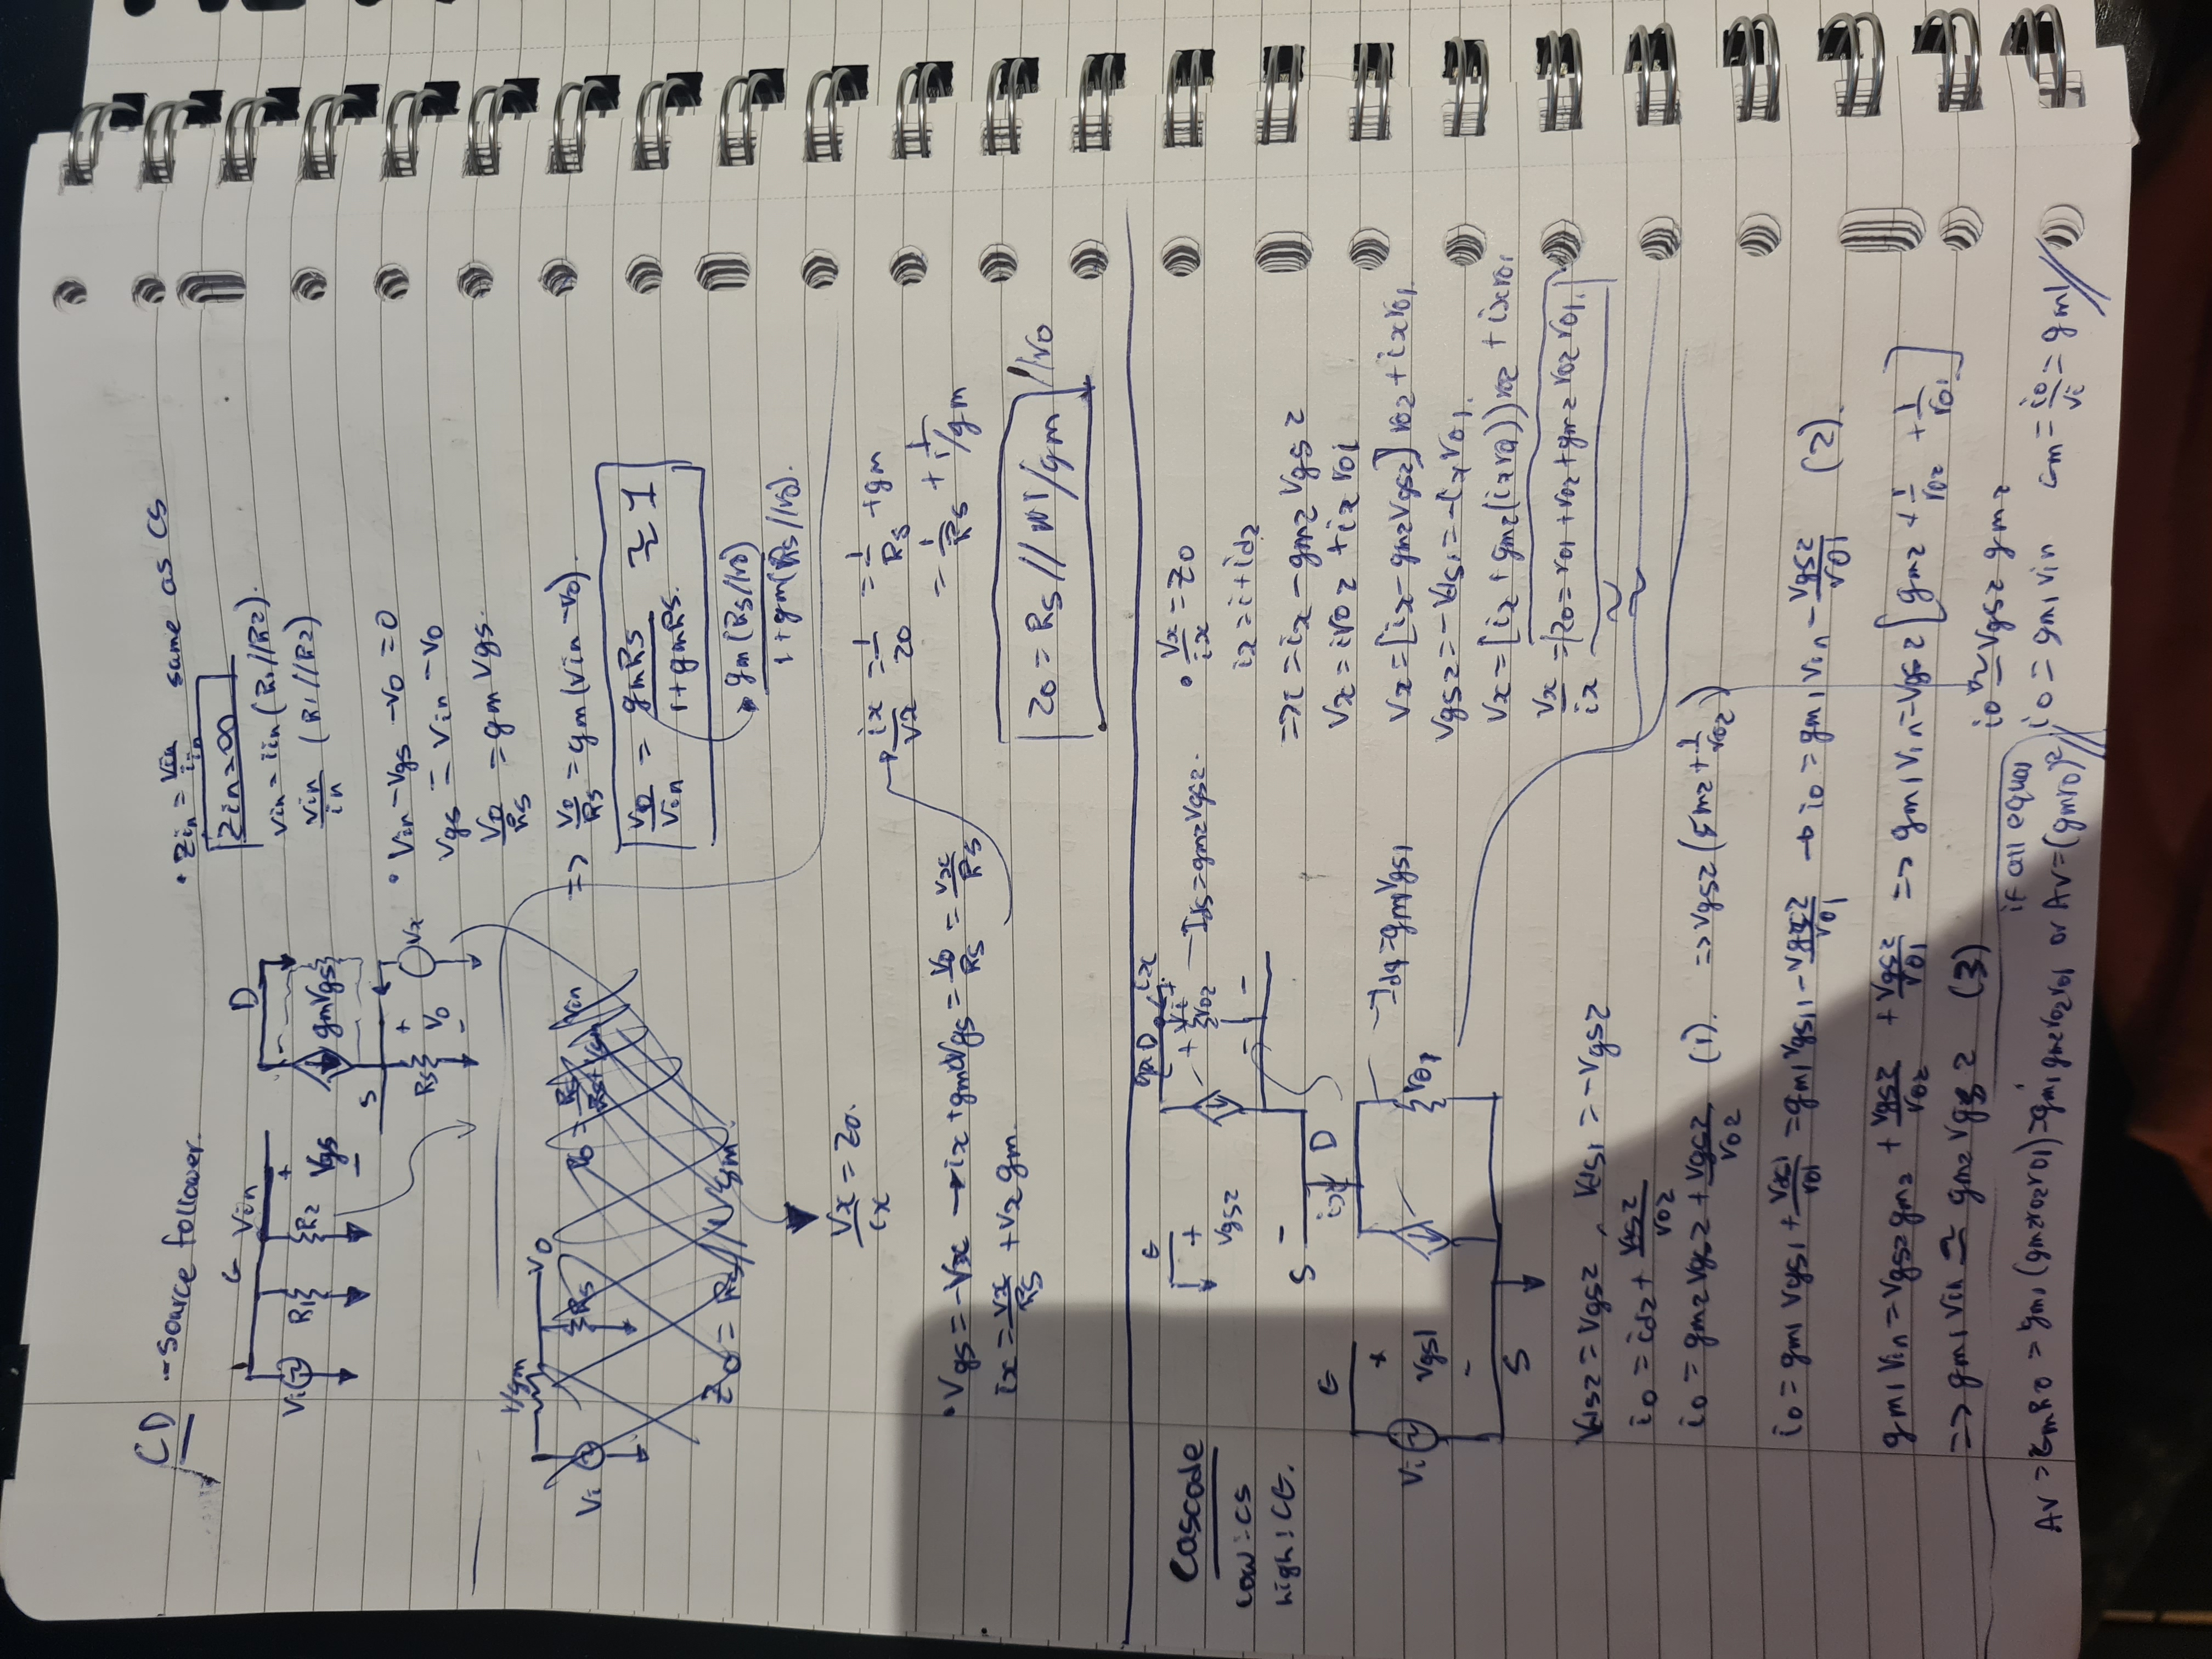 CD - source follower.
G Vin
D
Vi
R1
R2
+
Vgs
-
gmVgs
S
Rs
+
Vo
-
Vx
• Zin = Vin/iin same as CS
Zin = ∞
Vin = iin (R1//R2).
Vin/in (R1//R2)
• Vin - Vgs - Vo = 0
Vgs = Vin - Vo
Vo/Rs = gm Vgs.
=> Vo/Rs = gm(Vin - Vo).
Vo/Vin = gmRs/1+gmRs. ≈ 1
gm(Rs//ro)/1+gm(Rs//ro).
1/gm
Vo
Vi
Rs
Zo = Rs//1/gm
Vx/ix = Zo.
• Vgs = -Vx → ix + gmVgs = Vo/Rs = Vx/Rs
ix = Vx/Rs + Vx gm.
ix/Vx = 1/Zo = 1/Rs + gm
= 1/Rs + 1/1/gm
Zo = Rs // 1/gm //ro
Cascode
Low: CS
high: CG.
G
+
Vgs2
-
S
D
ix
ro2
Ids = gm2Vgs2.
D
G
+
Vi
Vgs1
-
S
ro1
Id1 = gm1Vgs1
• Vx/ix = Zo
ix = i + id2
=> i = ix - gm2 Vgs2
Vx = iro2 + ix ro1
Vx = [ix - gm2Vgs2] ro2 + ixro1.
Vgs2 = -Vds1 = -ixro1.
Vx = [ix + gm2(ixro1)) ro2 + ixro1
Vx/ix = Zo = ro1 + ro2 + gm2 ro2 ro1.
Vds2 = Vgs2, Vds1 = -Vgs2
io = id2 + Vds2/ro2
io = gm2 Vgs2 + Vgs2/ro2 (1). => Vgs2 (gm2 + 1/ro2)
io = gm1 Vgs1 + Vds1/ro1 = gm1 Vgs1 - Vgs2/ro1 → io = gm1 Vin - Vgs2/ro1 (2).
gm1 Vin = Vgs2 gm2 + Vgs2/ro2 + Vgs2/ro1 => gm1 Vin = Vgs2 [gm2 + 1/ro2 + 1/ro1]
=> gm1 Vin ≃ gm2 Vgs2 (3)
io ≃ Vgs2 gm2
if all equal
Av = GmRo = gm1 (gm2ro2ro1) = gm1 gm2 ro2 ro1 or Av = (gmro)²//
io = gm1 Vin Gm = io/Vi = gm1//